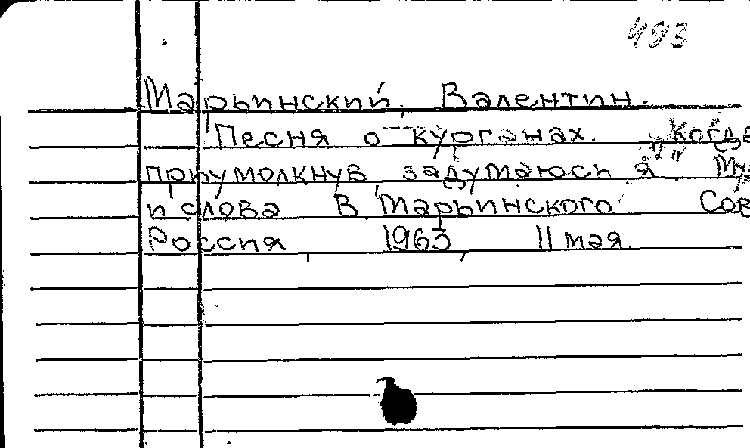 493
Марьинский, Валентин.
Песня о курганах. "Когда
приумолкнув задумаюсь я". Му
и слова В. Марьинского Сов
Россия, 1963, 11 мая.